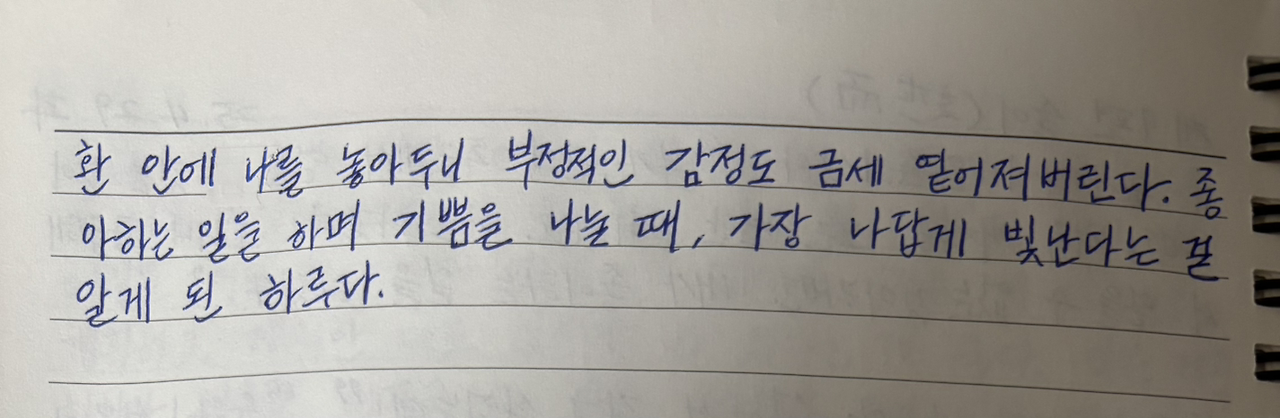 환 안에 나를 놓아두니 부정적인 감정도 금세 옅어져버린다. 좋
아하는 일을 하며 기쁨을 나눌 때, 가장 나답게 빛난다는 걸
알게 된 하루다.